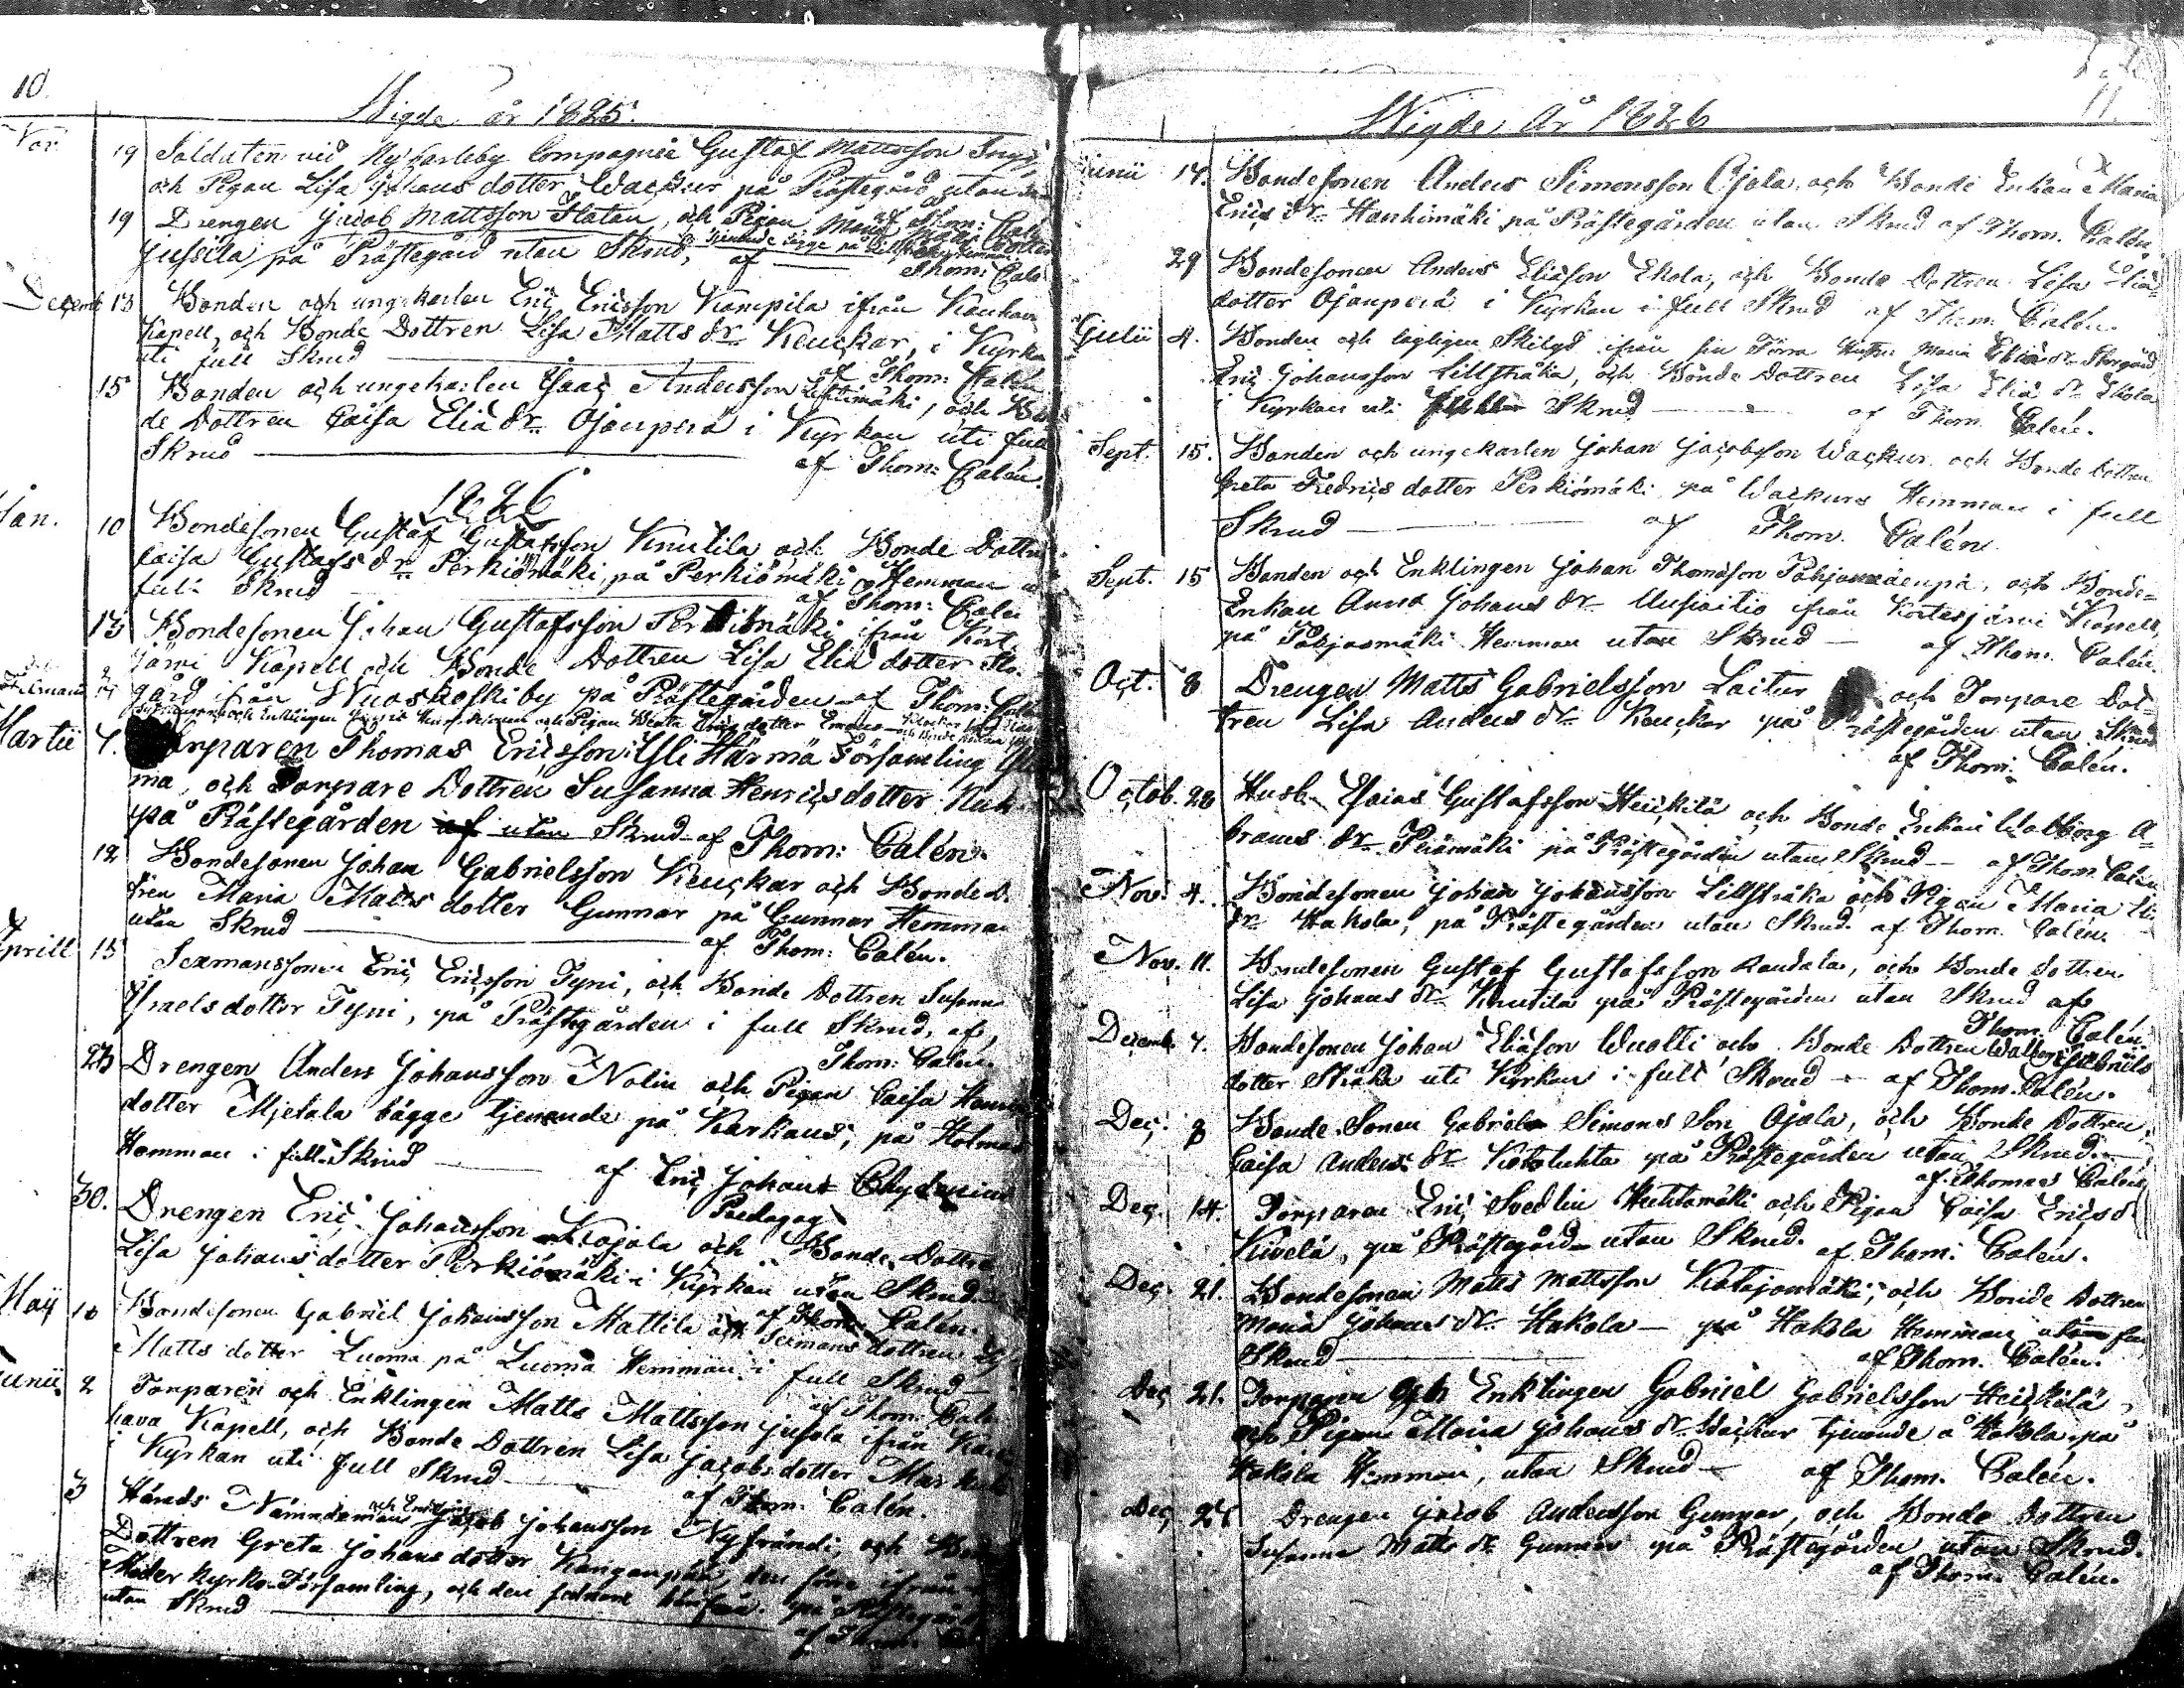 10.
Wigde år 1825.
Nov. 19 Soldaten vid Ny Karleby Compagnie Gustaf Mattsson
och Pigan Lisa Johans dotter Wackur på Prästegård utan
af Thom: Calén
19 Drengen Jacob Mattsson Slotan, och Pigan Maria Matts dotter
Jussila på Prästegård utan Skrud, af Thom: Calén
Decemb 13 Bonden och ungekarlen Eric Ericsson Kampila ifrån Kauhava
Kapell, och Bonde Dottren Lisa Matts dr Keuckar, i Kyrkan
uti full Skrud af Thom: Calén
15 Bonden och ungekarlen Isaac Andersson Lehtimäki, och Bon
de Dottren Caisa Elia dr Ojanperä i Kyrkan uti full
Skrud af Thom: Calén.
1826
Jan. 10 Bondesonen Gustaf Gustafsson Knutila och Bonde Dottren
Caisa Gustafs dr Perkiömäki, på Perkiömäki Hemman
full Skrud af Thom: Calén
13 Bondesonen Johan Gustafsson Perkiömäki ifrån Kort
järvi Kapell och Bonde Dottren Lisa Elia dotter Sto
gård ifrån Wuoskoski by på Prästegården af Thom: Calén
och Enklingen och Pigan Beata Erics dotter
Martii 7. Torparen Thomas Ericsson Yli Härmä Församling
ma, och Torpare Dottren Susanna Henrics dotter
på Prästegården af utan Skrud af Thom: Calén.
12 Bondesonen Johan Gabrielsson Keuckar och Bonde D
tren Maria Matts dotter Gunnar på Gunnar Hemman
utan Skrud af Thom: Calén.
Aprill 15 Sexmanssonen Eric Ericsson Tyni, och Bonde Dottren Susanna
Israels dotter Tyni, på Prästegården i full Skrud, af
Thom: Calén.
23 Drengen Anders Johansson Nolin och Pigan Caisa
dotter Mjetala bägge tjenande på Karhaus, på Holmas
Hemman i full Skrud af Eric Johan Chydenius
Pædagog
30. Drengen Eric Johansson Kojola och Bonde Dottren
Lisa Johans dotter Perkiömäki i Kyrkan utan Skrud
af Thom: Calén.
Maij 10 Bondesonen Gabriel Johansson Mattila och Sexmans dottren
Matts dotter Luoma på Luoma Hemman i full Skrud
af Thom: Calén
Junii 2 Torparen och Enklingen Matts Mattsson Jusola ifrån Kau
hava Kapell, och Bonde Dottren Lisa Jacobs dotter
i Kyrkan uti full Skrud af Thom: Calén.
3 Härads Nämndeman och Enklingen Jacob Johansson Nyfrändi, och
Dottren Greta Johans dotter Kanganpää, den förre ifrån
Moder kyrko Församling, och den på Prästegård
utan Skrud af Thom: C
11.
Wigde År 1826
Junii 14. Bondesonen Anders Simonsson Ojala, och Bonde Enkan Maria
Erics dr Hanhimäki på Prästegården utan Skrud af Thom. Calén
29 Bondesonen Anders Eliasson Ekola, och Bonde Dottren Lisa Elia
dotter Ojanperä i Kyrkan i full Skrud af Thom. Calén.
Julii 4. Bonden och lagligen Skilgd ifrån sin Förra Hustru Maria Elia dr Storgård
Eric Johansson Lillstråka, och Bonde Dottren Lisa Elia dr Ekola
i Kyrkan uti Skrud af Thom. Calén.
Sept. 15. Bonden och ungekarlen Johan Jacobsson Wackur och Bonde Dottren
Greta Fredrics dotter Perkiömäki på Wackurs Hemman i full
Skrud af Thom. Calén
Sept. 15 Bonden och Enklingen Johan Thomasson, och Bonde=
Enkan Anna Johans dr Uusiaitio ifrån Kortesjärvi Kapell,
på Pohjasmäki Hemman utan Skrud af Thom. Calén.
Oct. 8 Drengen Matts Gabrielsson Laitur och Torpare Dot
tren Lisa Anders dr Keuckar på Prästegården utan Skrud
af Thom: Calén.
Octob. 28 Husb. Esaias Gustafsson Heickilä och Bonde Enkan Walborg A=
brams dr Perämäki på Prästegården utan Skrud af Thom. Calén
Nov. 4. Bondesonen Johan Johansson Lillstråka och Pigan Maria
dr Hakola, på Prästegården utan Skrud af Thom. Calén.
Nov. 11. Bondesonen Gustaf Gustafsson Raudala, och Bonde Dottren
Lisa Johans dr Knutila på Prästegården utan Skrud af
Thom. Calén.
Decemb. 7. Bondesonen Johan Eliasson Wuolli och Bonde Dottren Walborg Gabriels
dotter Stråka uti Kyrkan i full Skrud af Thom. Calén.
Dec. 8 Bonde Sonen Gabriel Simons Son Ojala, och Bonde Dottren
Caisa Anders dr Kotoluhta på Prästegården utan Skrud.
af Thomas Calén
Dec. 14. Torparen Eric Svedlin Huhtamäki och Pigan Caisa Erics d
Kivelä, på Prästegård utan Skrud. af Thom: Calén.
Dec. 21. Bondesonen Matts Mattsson Katajamäki, och Bonde Dottren
Maria Johans dr Hakola på Hakola Hemman utan
Skrud af Thom. Calén.
Dec 21. Torparen och Enklingen Gabriel Gabrielsson Heickilä
och Pigan Maria Johans dr Wackur tjenande å Hakola, på
Hakola Hemman, utan Skrud af Thom. Calén.
Dec 26 Drengen Jacob Andersson Gunnar, och Bonde Dottren
Susanna Matts dr Gunnar på Prästegården utan Skrud.
af Thom. Calén.